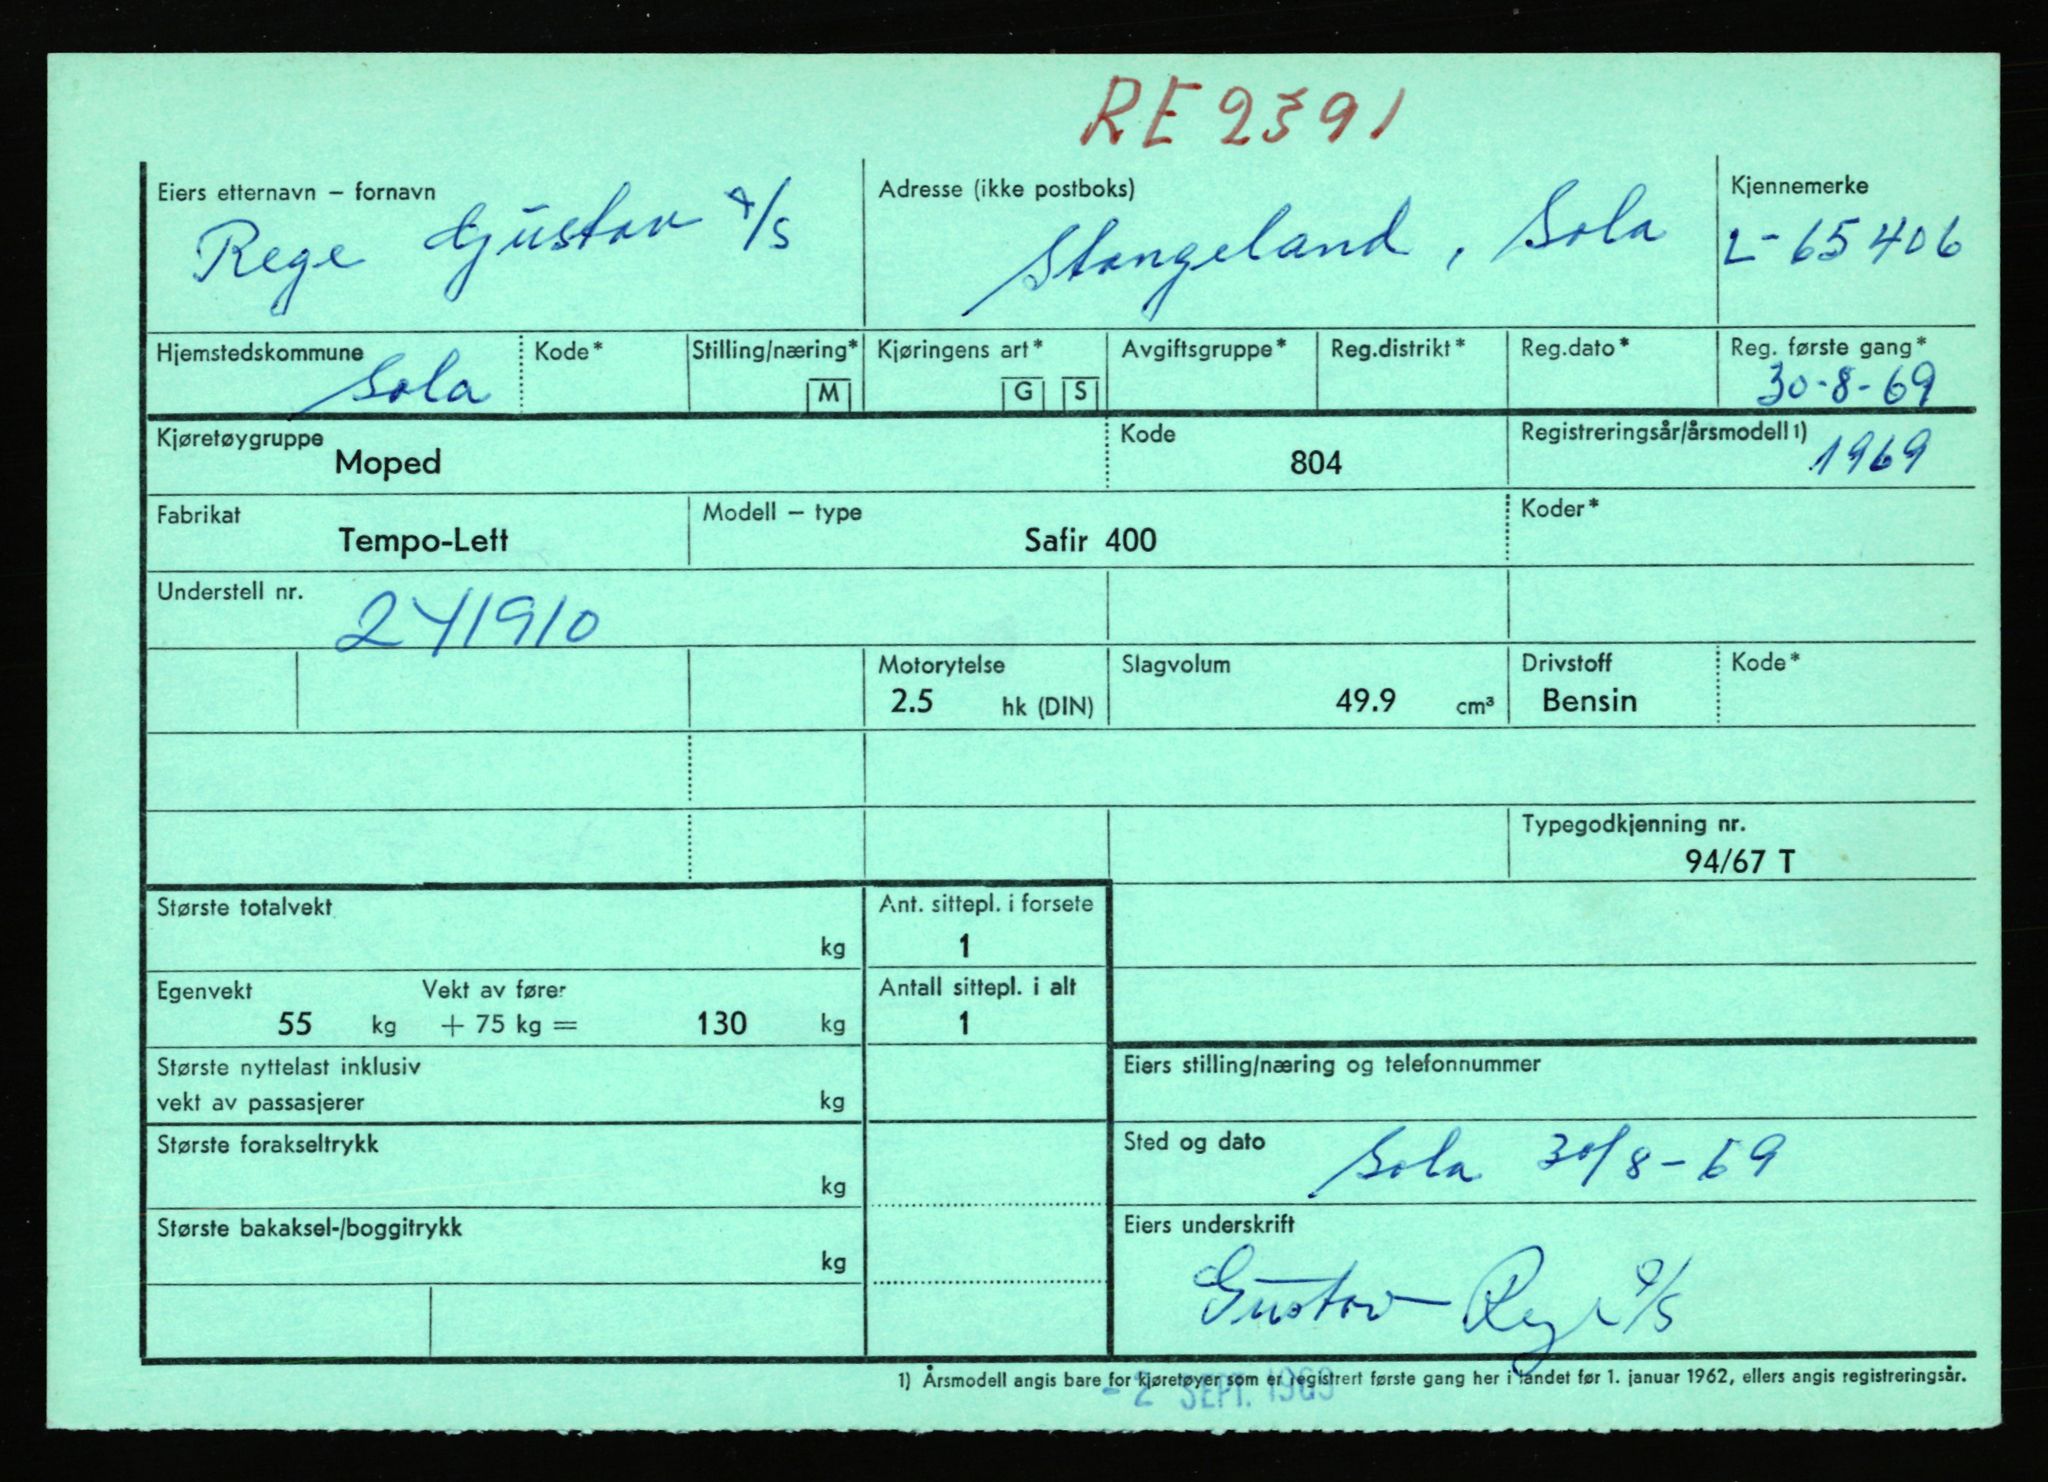 RE 2391
Eiers etternavn – fornavn
Rege Gustav A/S
Adresse (ikke postboks)
Stangeland, Sola
Kjennemerke
L-65406
Hjemstedskommune
Sola
Kode*
Stilling/næring*
M
Kjøringens art*
G S
Avgiftsgruppe*
Reg.distrikt*
Reg.dato*
Reg. første gang*
30-8-69
Kjøretøygruppe
Moped
Kode
804
Registreringsår/årsmodell 1)
1969
Fabrikat
Tempo-Lett
Modell – type
Safir 400
Koder*
Understell nr.
241910
Motorytelse
2.5 hk (DIN)
Slagvolum
49.9 cm³
Drivstoff
Bensin
Kode*
Typegodkjenning nr.
94/67 T
Største totalvekt
kg
Ant. sittepl. i forsete
1
Egenvekt
55 kg
Vekt av fører
+ 75 kg = 130 kg
Antall sittepl. i alt
1
Største nyttelast inklusiv
vekt av passasjerer kg
Eiers stilling/næring og telefonnummer
Største forakseltrykk
kg
Sted og dato
Sola 30/8-69
Største bakaksel-/boggitrykk
kg
Eiers underskrift
Gustav Rege A/S
1) Årsmodell angis bare for kjøretøyer som er registrert første gang her i landet før 1. januar 1962, ellers angis registreringsår.
- 2 SEPT. 1969